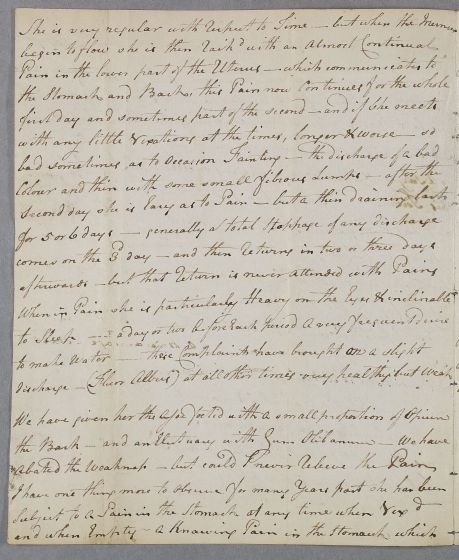 She is very regular with respect to Time — but when the Menses
begin to flow she is then rack'd with an almost Continual
Pain in the lower part of the Uterus — which communicates to
the Stomach and Back, this Pain now Continues for the whole
first day and sometimes part of the second — and if she meets
with any little Vexations at the times, longer & worse — so
bad sometimes as to Occasion Fainting — the discharge of a bad
Colour and thin with some small fibrous Lumps — after the
Second day she is Easy as to Pain — but a thin Draining lasts
for 5 or 6 days — generally a total Stoppage of any discharge
comes on the 3 day — and then returns in two or three days
afterwards — but that Return is never attended with Pains
When in Pain she is particularly Heavy on the Eyes & inclinable
to Sleep — a day or two before Each Period a very frequent desire
to make Water — these Complaints have brought on a slight
discharge — (Fluor Albus) at all other times very healthy but Weak
We have given her the with a small proportion of Opium
the Bark — and an Electuary with Gum Olibanum — We have
Abated the Weakness — but could never relieve the Pain
I have one thing more to observe for many Years past she has been
Subject to a Pain in the Stomach at any time when Vex'd
and when Empty — a Knawing Pain in the Stomach which